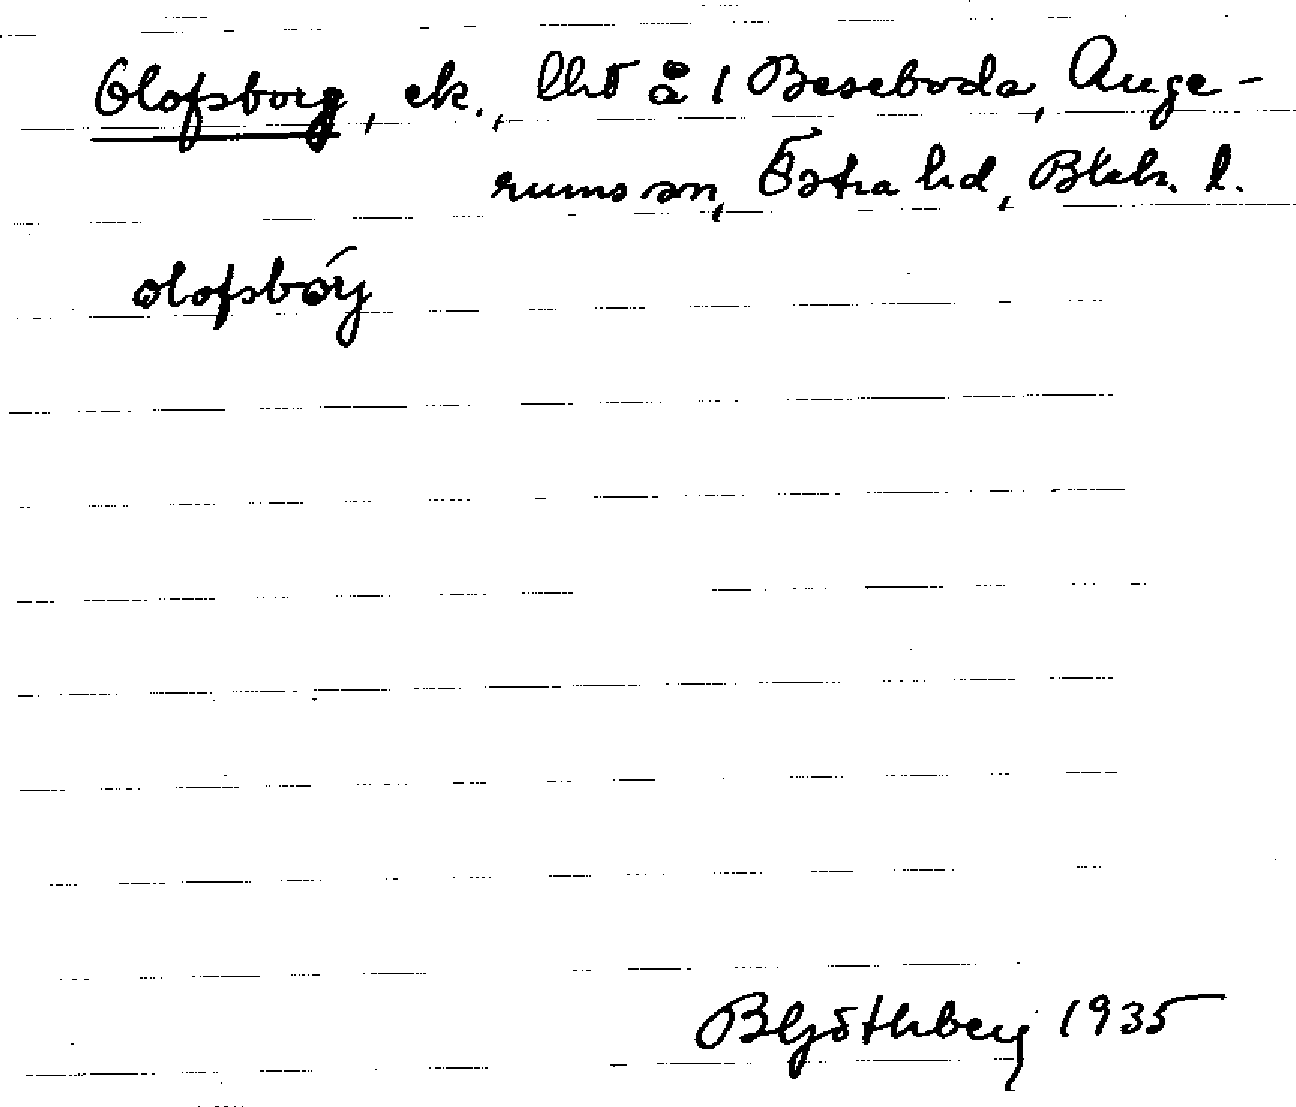 Olofsborg, ek., lht å 1 Beseboda, Auge-
rums sn, Östra hd, Blek. l.
olofsbórj
B Götlberg 1935